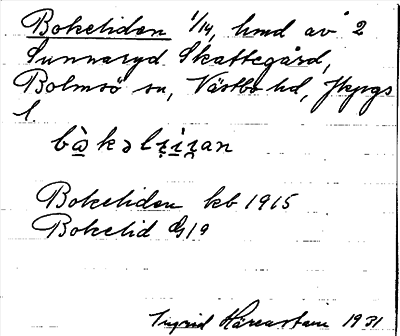 Bokeliden 1/14, hmd av 2
Sunnaryd Skattegård,
Bolmsö sn, Västbo hd, Jkpgs
l
Bokeliden kb 1915
Bokelid G19
Ingrid 1931